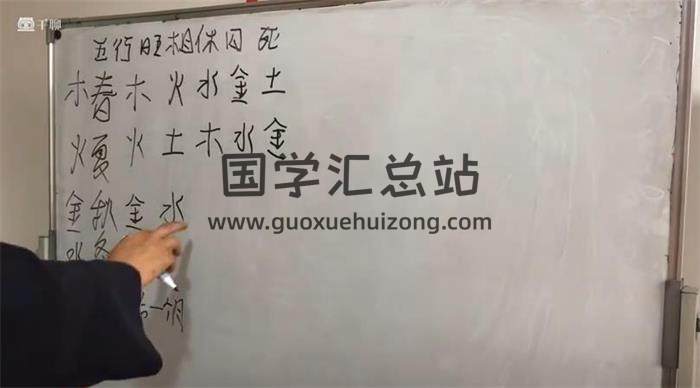 千聊
五行旺相休囚死
木春木火水金土
火夏火土木水金
国学汇总站
www.guoxuehuizong.com
金秋金水
水冬
一个月